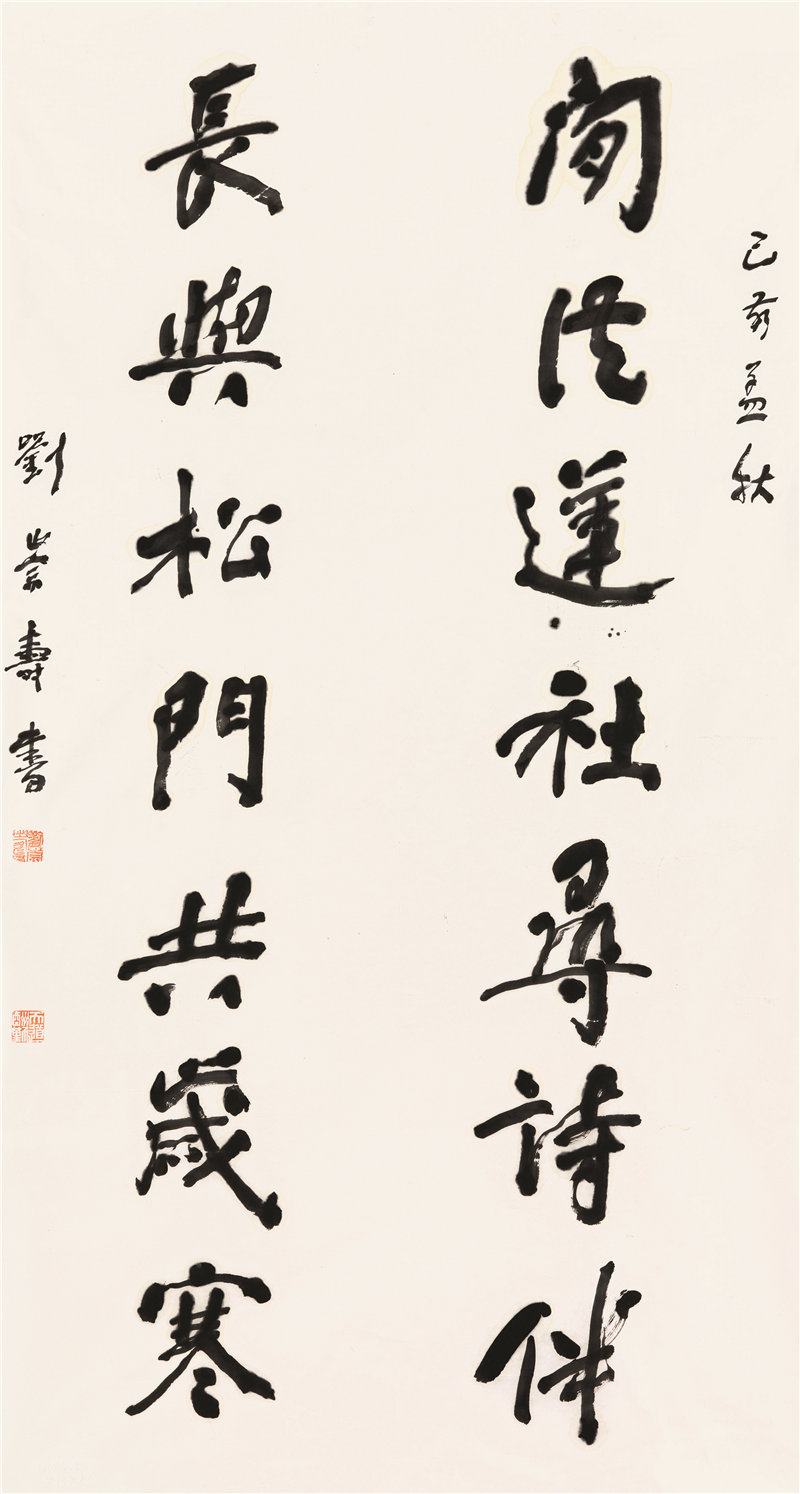 己亥孟秋
閒從蓮社尋詩伴
長與松門共歲寒
劉崇壽書